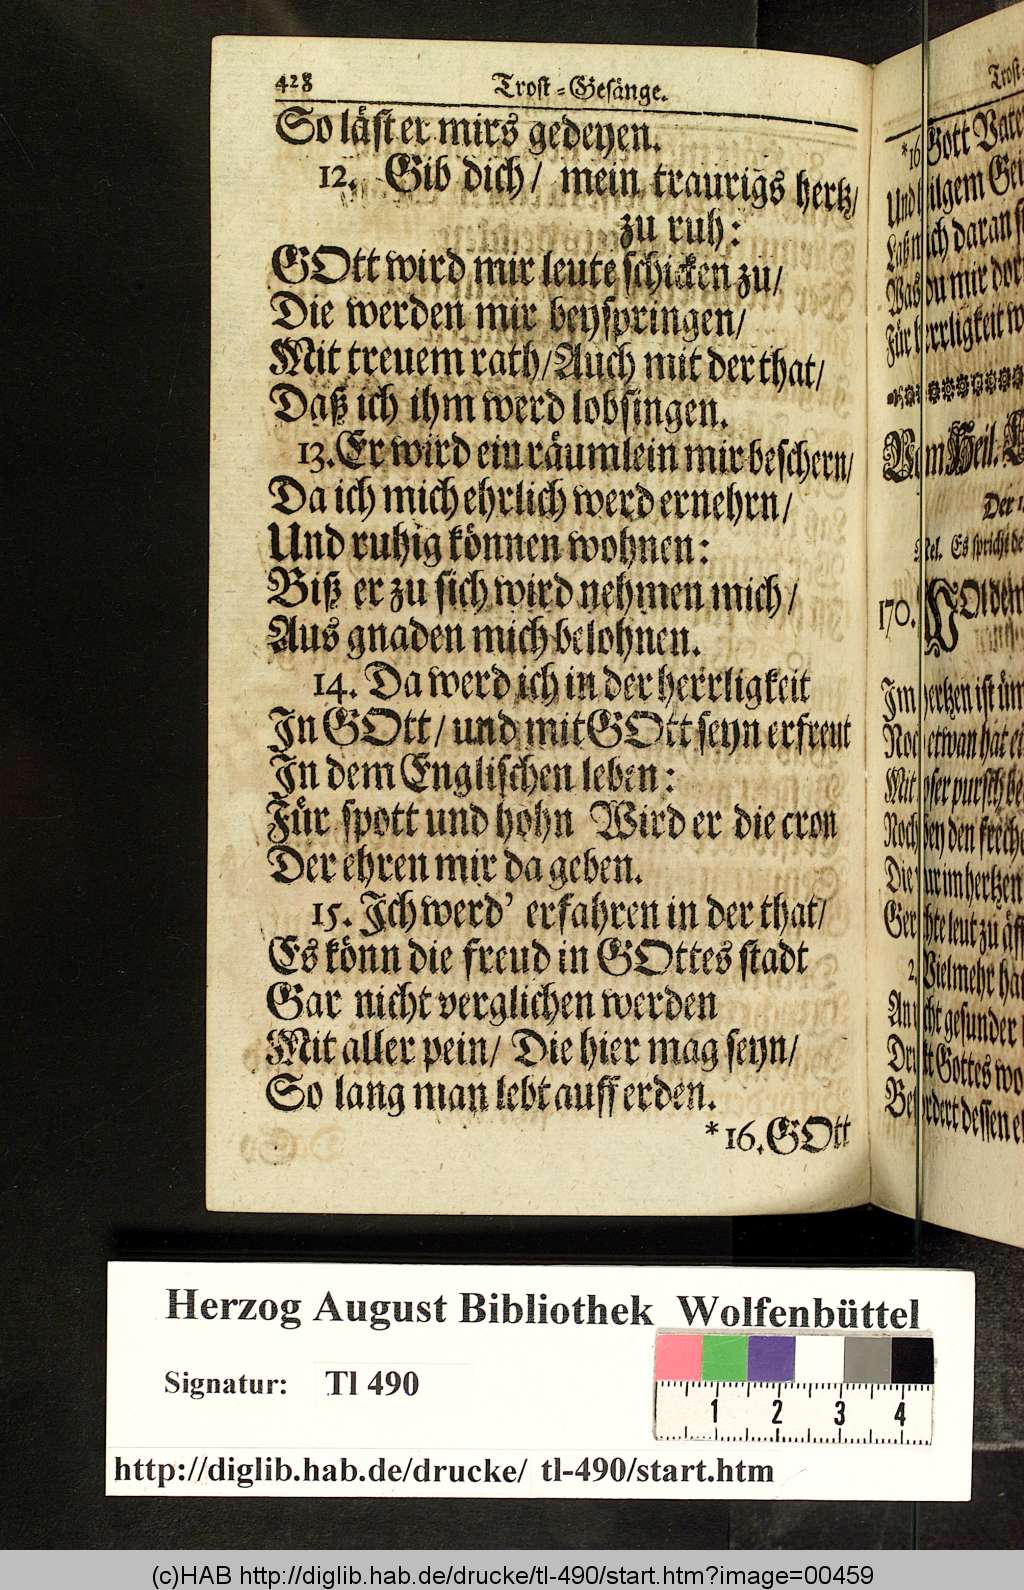 428 Trost-Gesänge.
So läst er mirs gedeyen.
12. Gib dich/ mein traurigs hertz/
zu ruh:
GOtt wird mir leute schicken zu/
Die werden mir beyspringen/
Mit treuem rath/ Auch mit der that/
Daß ich ihm werd lobsingen.
13. Er wird ein räumlein mir beschern/
Da ich mich ehrlich werd ernehrn/
Und ruhig können wohnen:
Biß er zu sich wird nehmen mich/
Aus gnaden mich belohnen.
14. Da werd ich in der herrligkeit
In GOtt/ und mit GOtt seyn erfreut
In dem Englischen leben:
Für spott und hohn Wird er die cron
Der ehren mir da geben.
15. Ich werd' erfahren in der that/
Es könn die freud in GOttes stadt
Gar nicht verglichen werden
Mit aller pein/ Die hier mag seyn/
So lang man lebt auff erden.
*16. GOtt
Trost-
*16 Gott Vate
Und
ich daran
Was du mir
Für herrligkeit
Vom Heil.
Der
Mel. Es spricht
170. WOl dem
Im hertzen ist
Noch etwan hat
Mit
Noch bey den
Die nur im hertzen
leut zu
2. Vielmehr
gesunder
Gottes
dessen
Herzog August Bibliothek Wolfenbüttel
Signatur: Tl 490
1 2 3 4
http://diglib.hab.de/drucke/ tl-490/start.htm
(c)HAB http://diglib.hab.de/drucke/tl-490/start.htm?image=00459